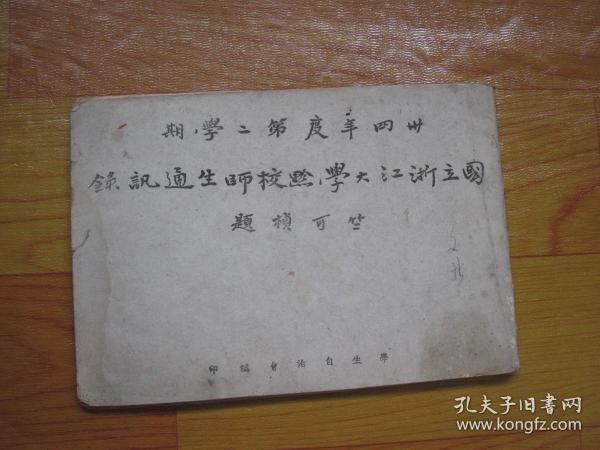 卅四年度第二學期
國立浙江大學黔校師生通訊錄
竺可楨題
學生自治會編印
孔夫子旧書网
www.kongfz.com